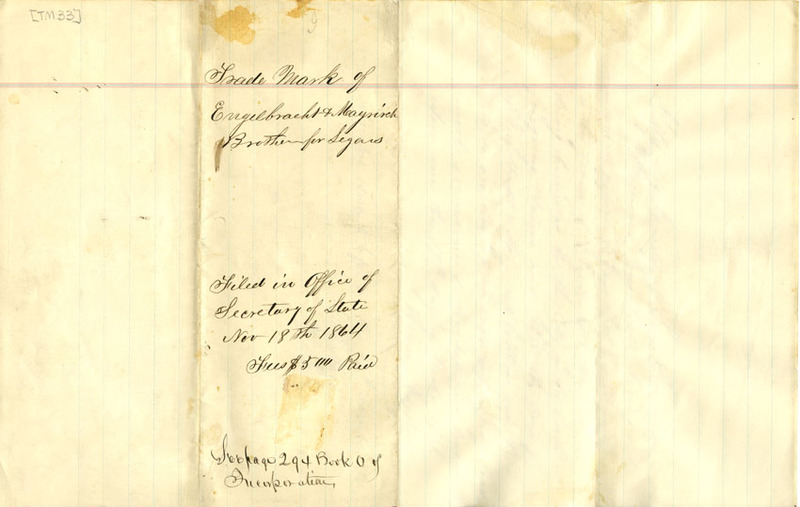 [TM33]
9
Trade Mark of
Engelbracht & Mayrisch
Brothers for Segars
Filed in Office of
Secretary of State
Nov 18th 1864
Fees $5 00 Paid
See page 294 Book O of
Incorporations